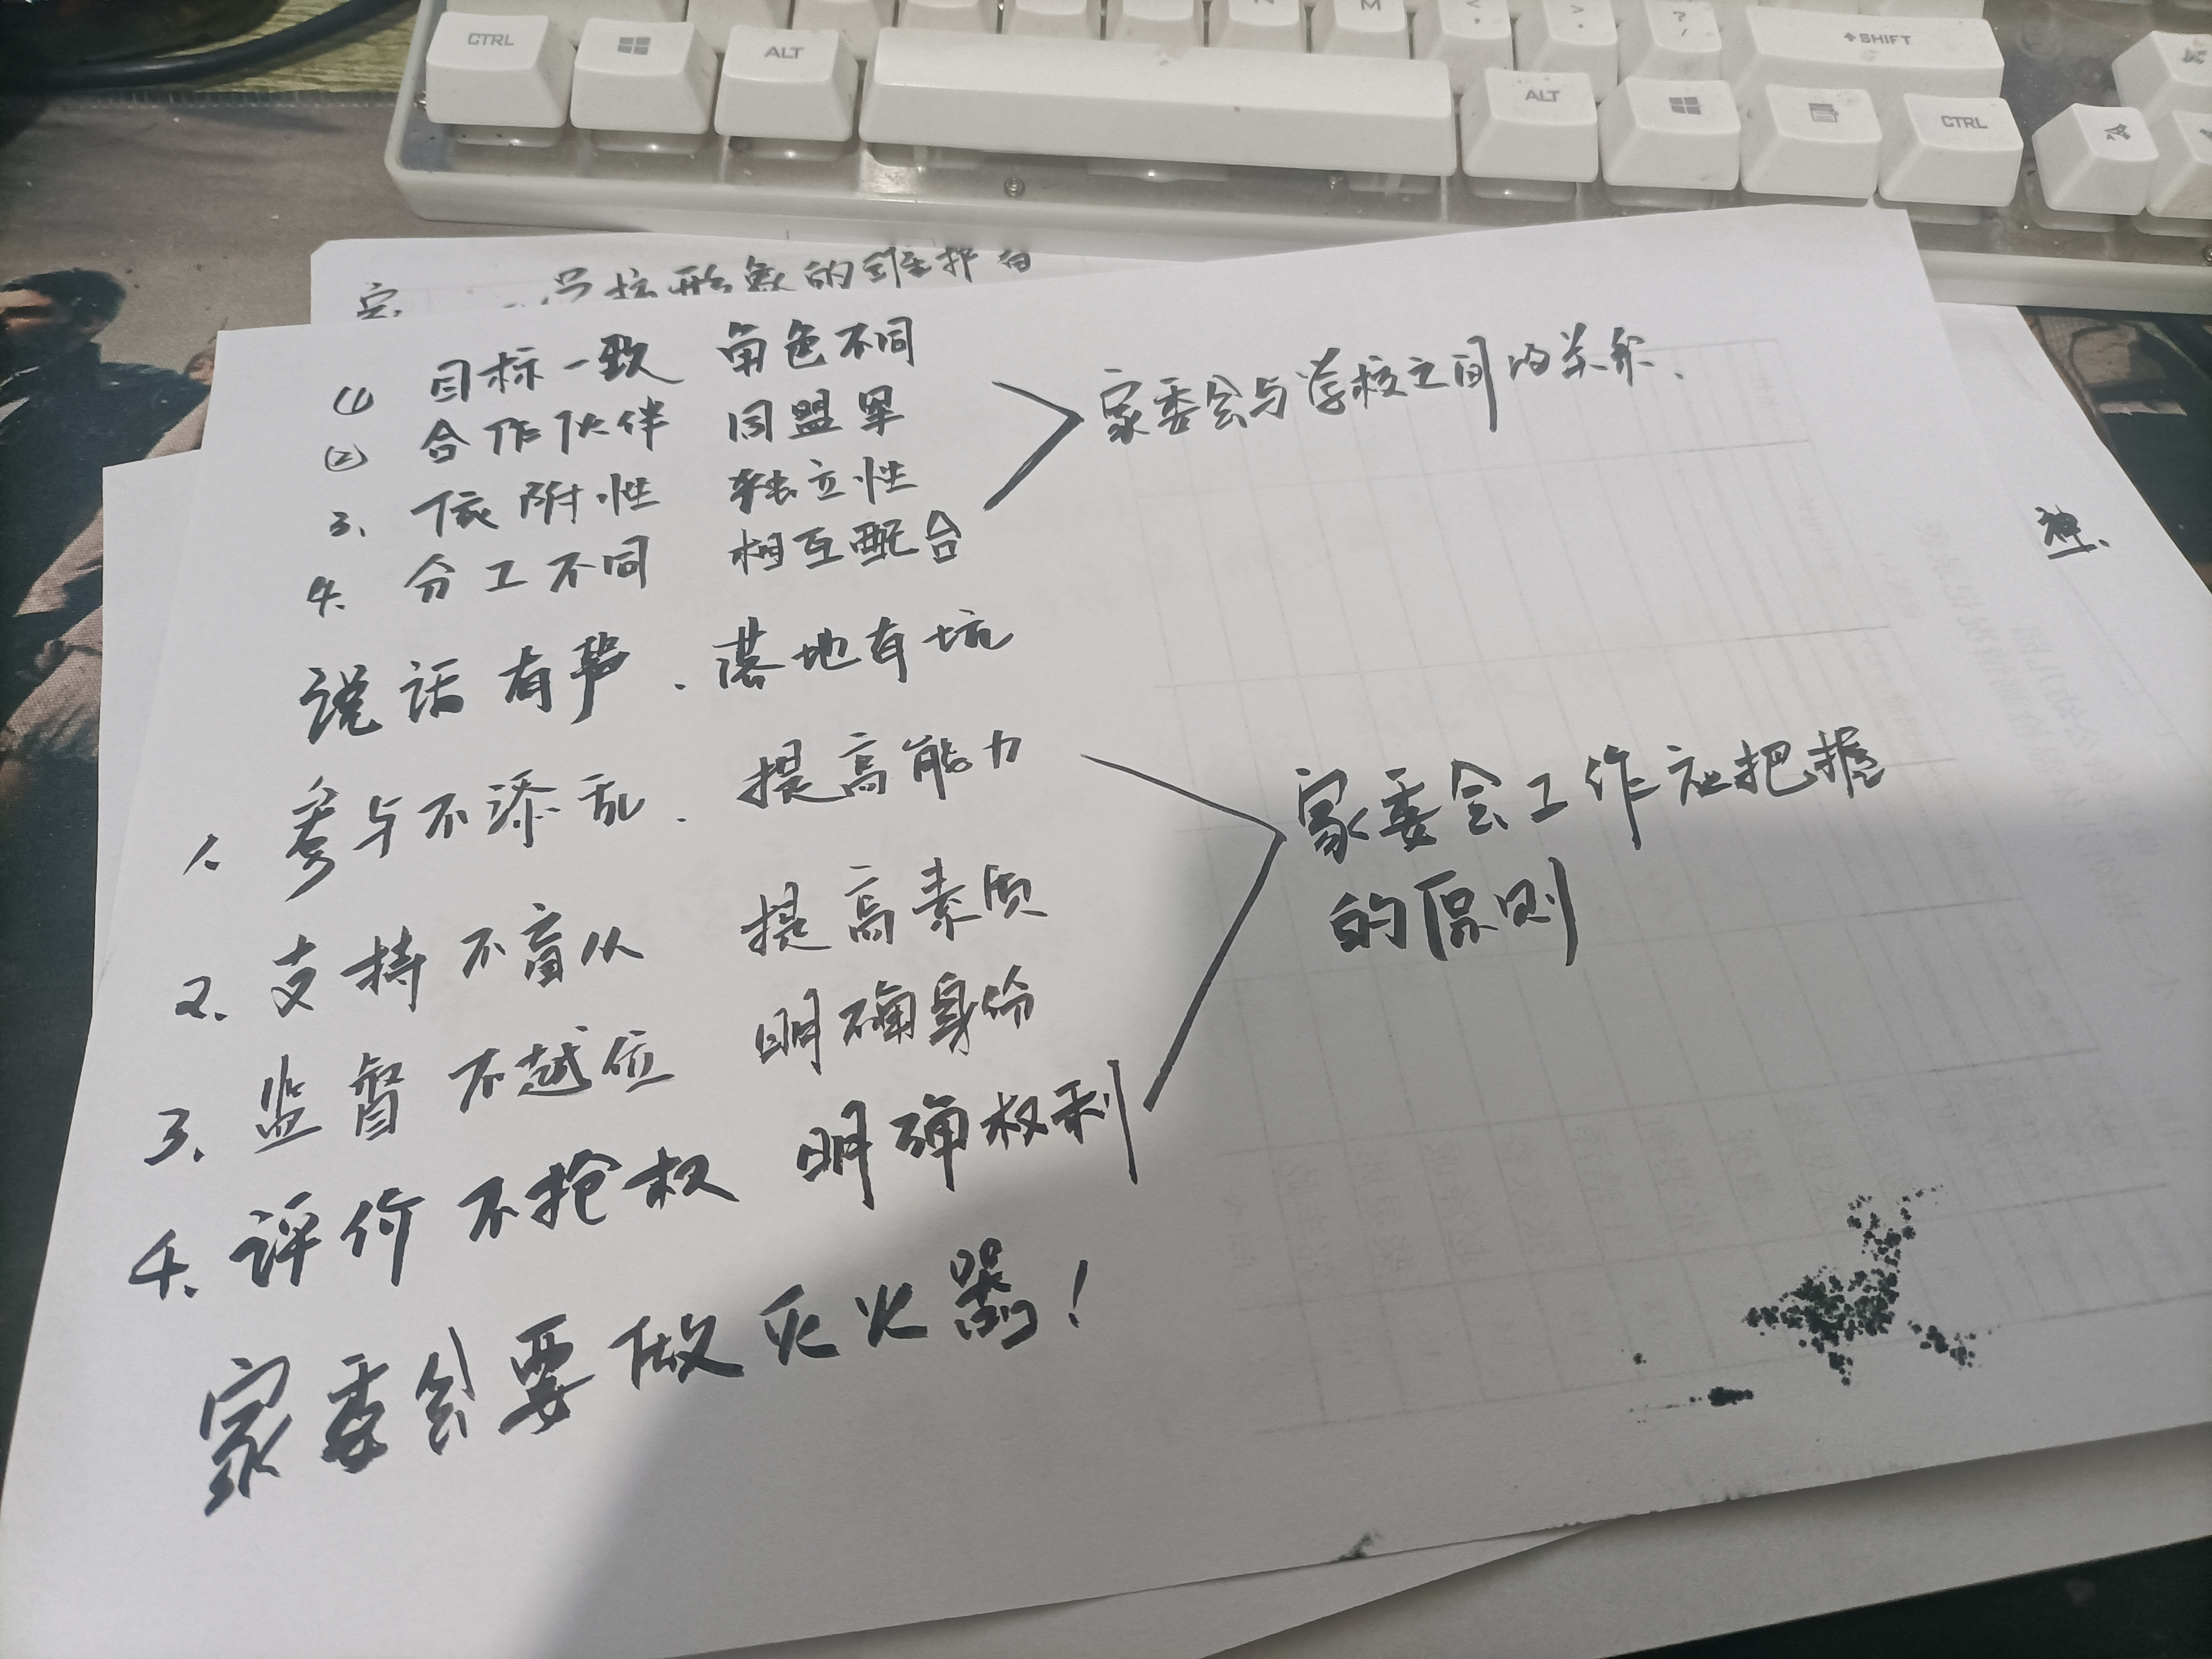 CTRL ALT ALT CTRL
N M < , > . ? / SHIFT
形象的维护者
① 目标一致 角色不同
② 合作伙伴 同盟军
家委会与学校之间的关系.
3、依附性 独立性
4、分工不同 相互配合
说话有声、落地有坑
1、参与不添乱、提高能力
2、支持不盲从 提高素质
家委会工作应把握
的原则
3、监督不越位 明确身份
4、评价不抢权 明确权利
家委会要做灭火器!